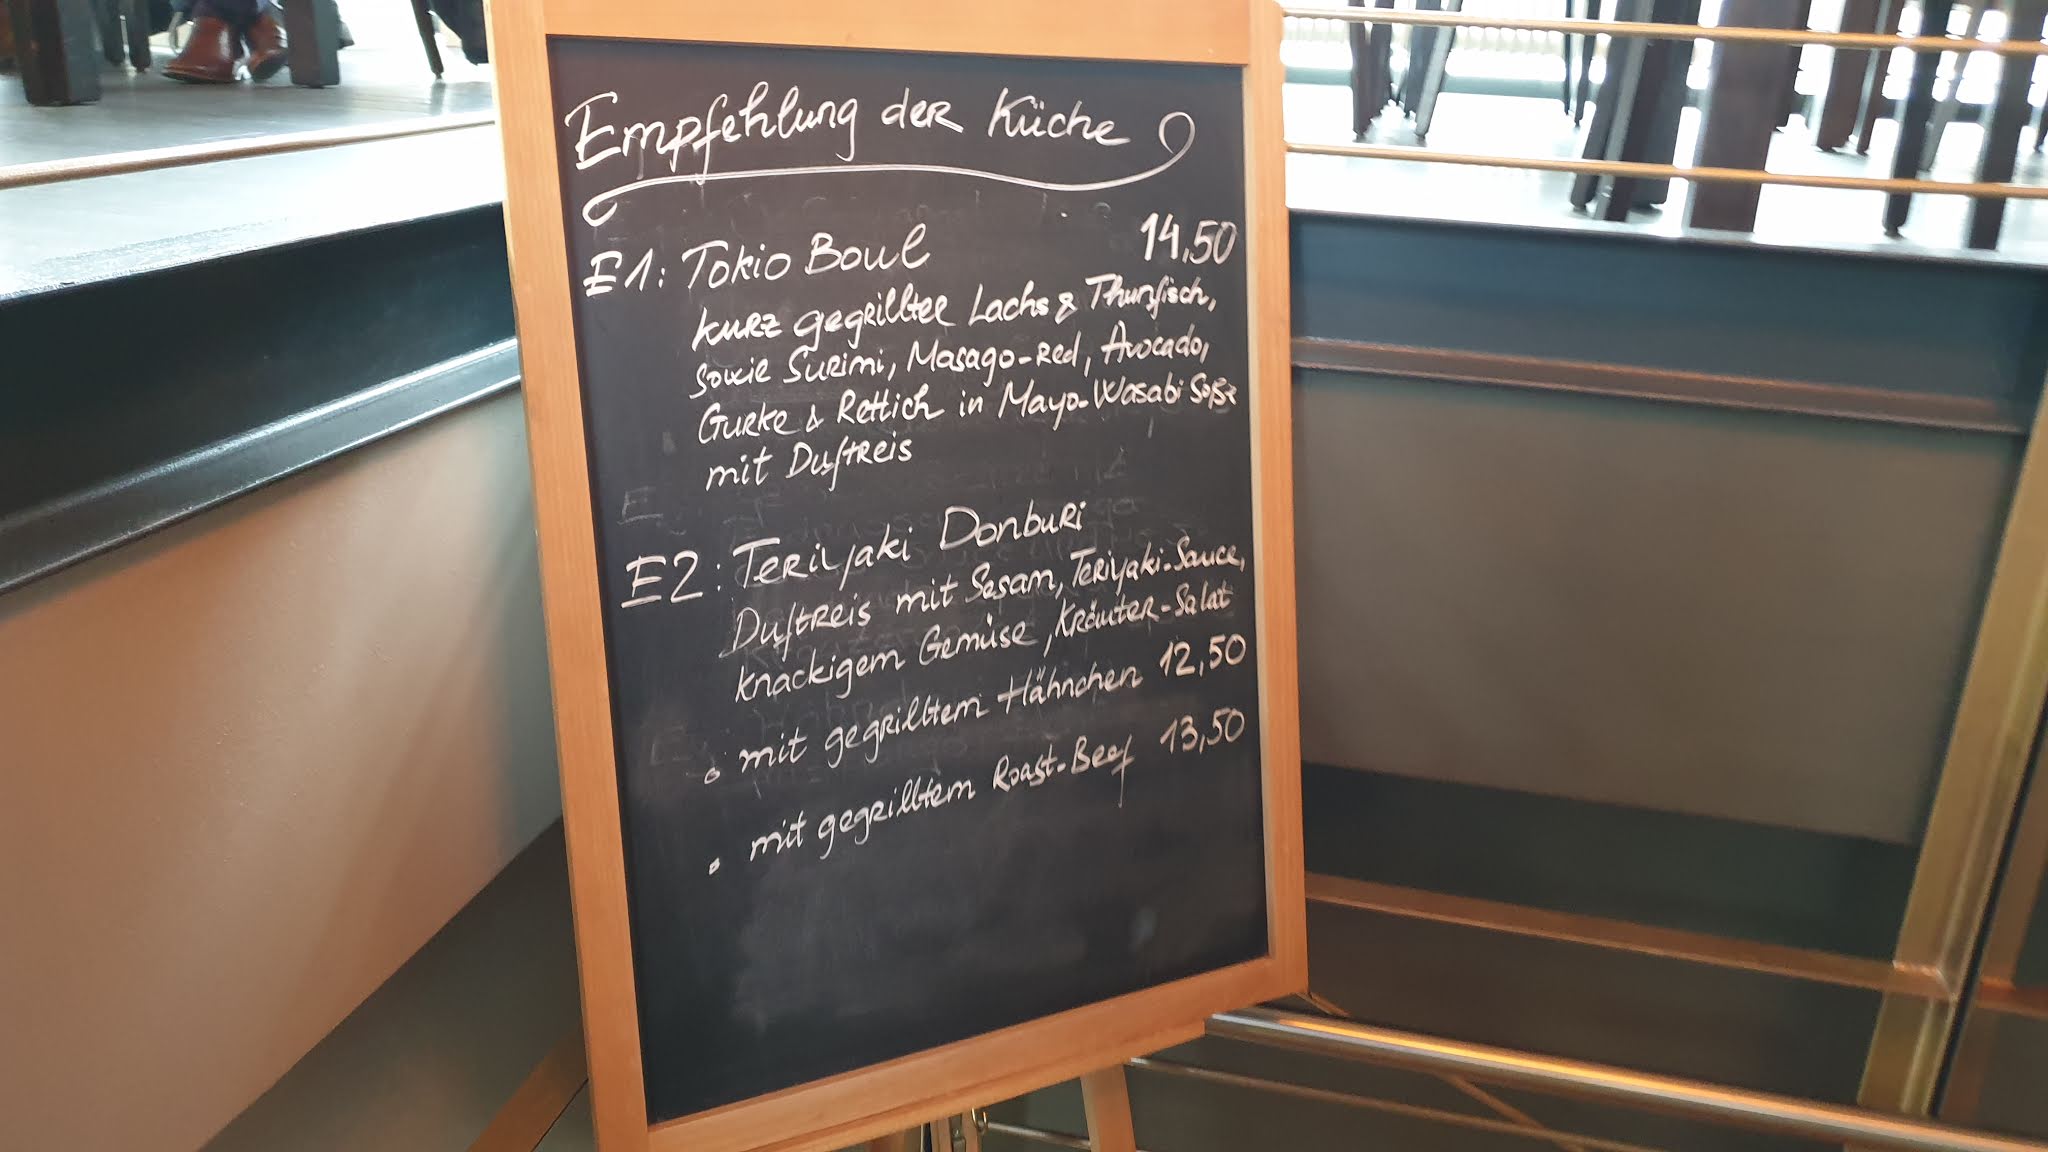 Empfehlung der Küche
E1: Tokio Bowl 14,50
kurz gegrillter Lachs & Thunfisch,
sowie Surimi, Masago-red, Avocado,
Gurke & Rettich in Mayo-Wasabi Soße
mit Duftreis
E2: Teriyaki Donburi
Duftreis mit Sesam, Teriyaki-Sauce,
knackigem Gemüse, Kräuter-Salat
• mit gegrilltem Hähnchen 12,50
• mit gegrilltem Roast-Beef 13,50